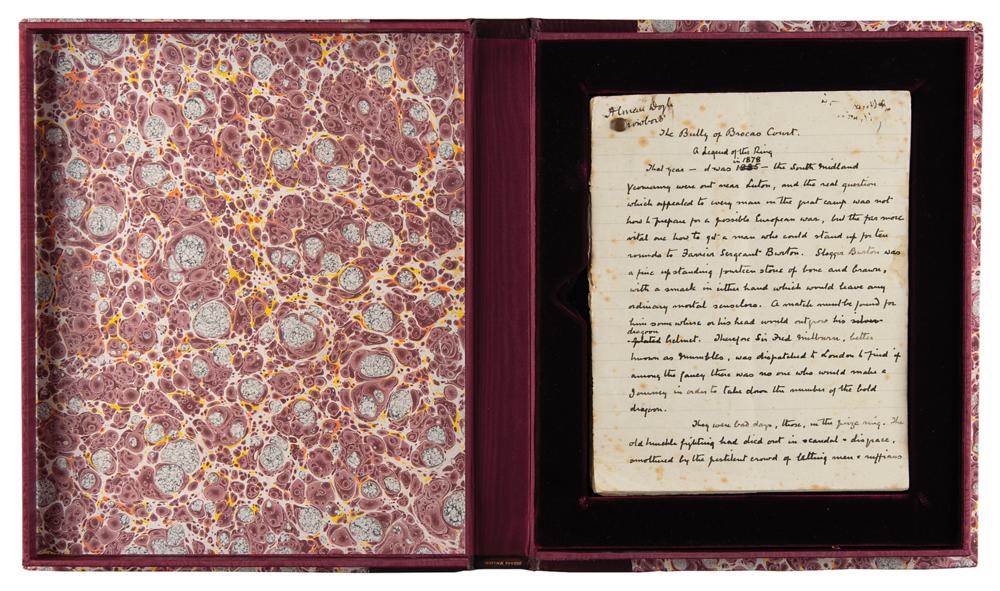 A Conan Doyle
Crowboro'
The Bully of Brocas Court.
A Legend of the Ring
That year – it was in 1878 1885 – the South Midland
Yeomanry were out near Luton, and the real question
which appealed to every man in the great camp was not
how to prepare for a possible European war, but the far more
vital one how to get a man who could stand up for ten
rounds to Farrier Sergeant Burton. Slogger Burton was
a fine upstanding fourteen stone of bone and brawn,
with a smack in either hand which would leave any
ordinary mortal senseless. A match must be found for
him somewhere or his head would outgrow his silver-
dragoon
plated helmet. Therefore Sir Fred Milburn, better
known as Mumbles, was dispatched to London to find if
among the fancy there was no one who would make a
journey in order to take down the number of the bold
dragoon.
They were bad days, those, in the prize ring. The
old knuckle fighting had died out in scandal & disgrace,
smothered by the pestilent crowd of betting men & ruffians